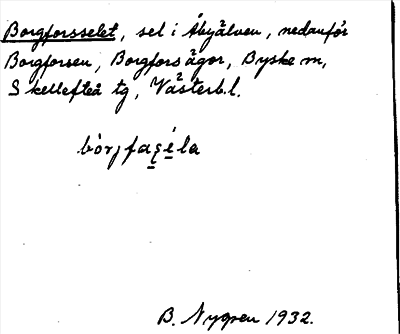 Borgforsselet, sel i Åbyälven, nedanför
Borgforsen, Borgfors ägor, Byske sn,
Skellefteå tg, Västerb.l.
B. Nygren 1932.